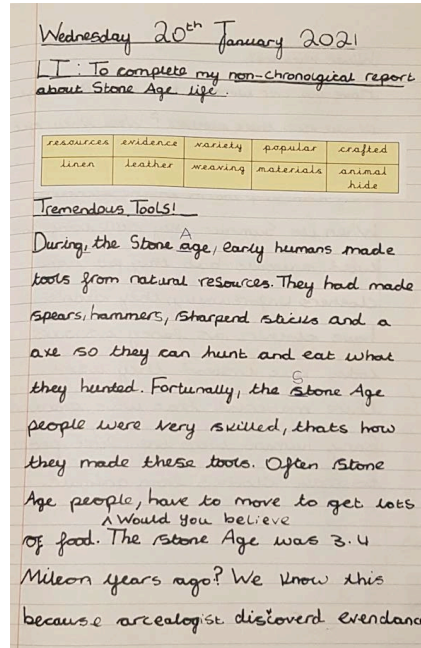 Wednesday 20th January 2021
LI: To complete my non-chronolgical report
about Stone Age life.
resources evidence variety popular crafted
linen leather weaving materials animal hide
Tremendous Tools!
During, the Stone Age, early humans made
tools from natural resources. They had made
spears, hammers, sharpend sticks and a
axe so they can hunt and eat what
they hunted. Fortunally, the Stone Age
people were very skilled, thats how
they made these tools. Often Stone
Age people, have to move to get lots
of food. Would you believe The Stone Age was 3.4
Mileon years ago? We know this
because arcealogist discoverd evendanc